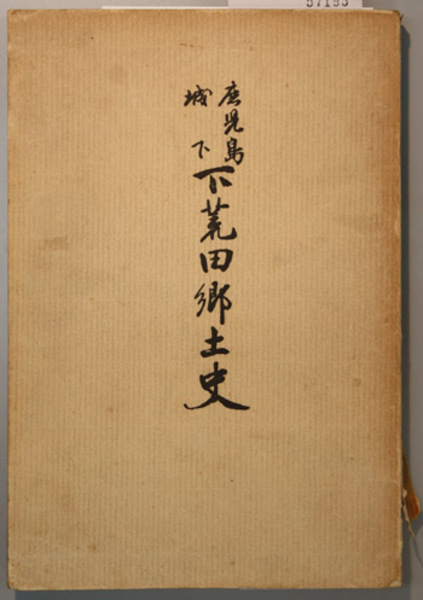 57193
鹿児島
城下
下荒田郷土史